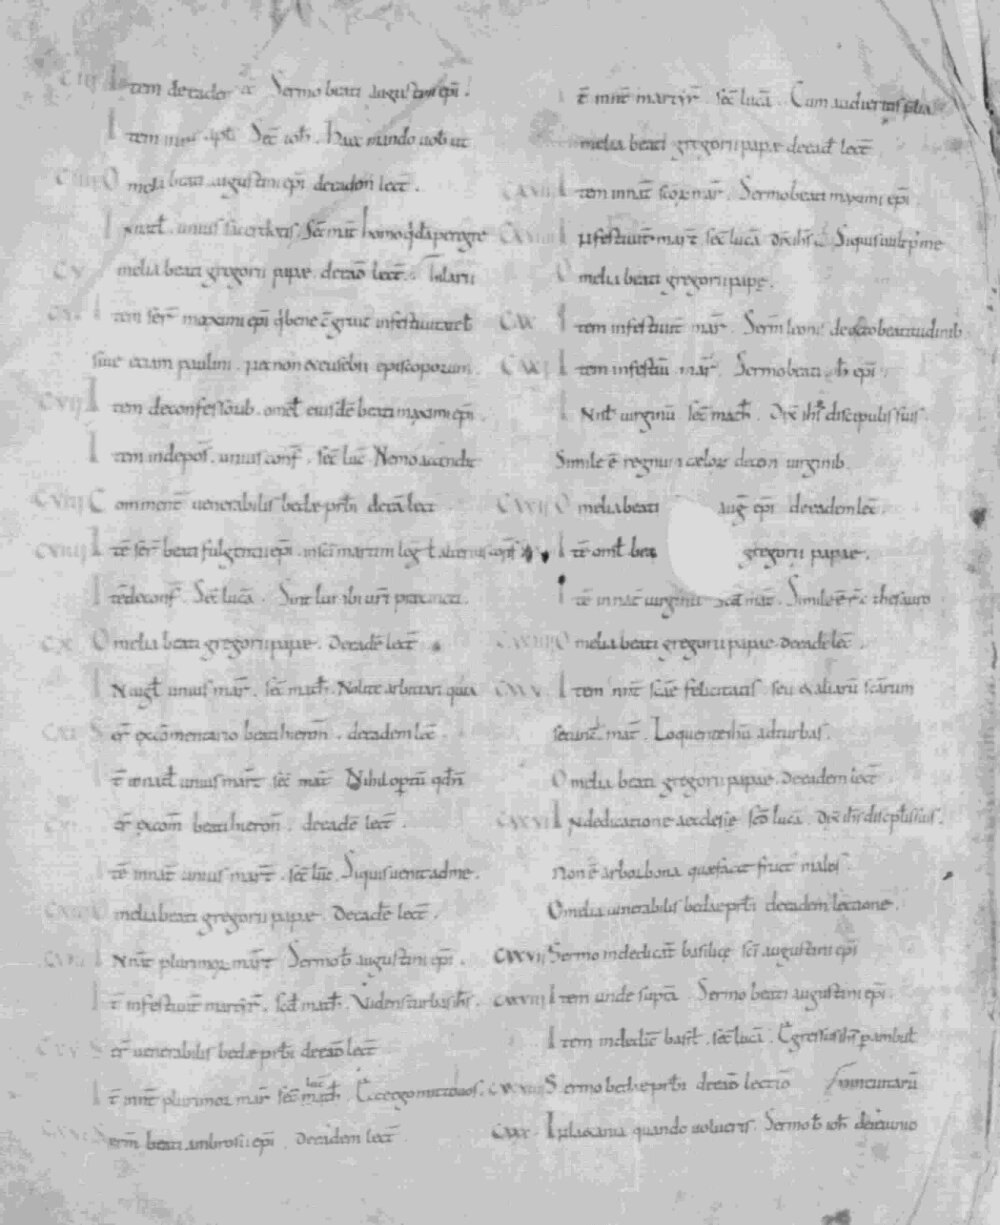 CIII Item de eadem Sermo beati augustini epī.
Item Sec̄ ioh̄. haec mando uobis ut
CIIII Omelia beati augustini epī de eadem lect̄.
In nat̄. unius sacerdotis. Sec̄ mat̄ homo q̄dā peregre
CV melia beati gregorii papae. de eadē lect̄. hilarii
CVI Item ser̄ maximi epī q̄ bene c̄gruit in festiuitate
siue etiam paulini. nec non et eusebii episcoporum.
CVII Item de confessorib. omel̄ eiusdē beati maximi epī.
Item in depos̄. unius conf̄. sec̄ luc̄ Nemo accendit
CVIII Comment̄ uenerabilis bedae prb̄i de eadē lect̄
CVIIII Itē ser̄ beati fulgentii epī.
Itē de conf̄. Sec̄ lucā. Sint lumbi uri precincti.
CX Omelia beati gregorii papae. De eadē lect̄
In nat̄ unius mar̄. sec̄ math̄. Nolite arbitrari quia
CXI Ser̄ ex comentario beati hieron̄. de eadem lec̄.
Itē in nat̄ unius mart̄ sec̄ mat̄ Nihil optū qd̄ n̄
Ser̄ ex com̄ beati hieron̄. de eadē lect̄.
Itē in nat̄ unius mart̄. sec̄ luc̄. Siquis uenit ad me.
Omelia beati gregorii papae. De eadē lect̄.
In nat̄ plurimoꝝ mar̄t Sermo b̄ augustini epī.
Itē in festiuit̄ martyr̄. sec̄d math̄. Uidens turbas ih̄s.
CXV Ser̄ uenerabilis bedae prb̄i de eadē lect̄
Itē in nt̄ plurimoꝝ mar̄ sec̄ luc̄ math̄. Ecce ego mitto uos.
CXVI Serm̄ beati ambrosii epī. De eadem lect̄.
Itē in nt̄ martyr̄. sec̄ lucā. Cum audieritis p̄lia
Omelia beati gregorii papae de ead̄ lect̄
CXVII Item in nat̄ sc̄oꝝ mar̄. Sermo beati maximi epī.
CXVIII In festiuit̄ mart̄ sec̄ lucā dix̄ ih̄s Siquis uult p̄ me
Omelia beati gregorii papę.
CXX Item in festiuit̄ mar̄. Serm̄ leonis de octo beatitudinib.
CXXI Item in festiū mar̄. Sermo beati ioh̄ epī.
In nat̄ uirginū. sec̄ math̄. Dix̄ ih̄s discipulis suis.
Simile ē regnum caeloꝝ decem uirginib.
CXXII Omelia beati auḡ epī de eadem lec̄.
Itē omel̄ bea gregorii papae.
Itē in nat̄ uirginū sec̄d mat̄. Simile ē r̄ c̄ thesauro
CXXIIII Omelia beati gregorii papae de eadē lec̄.
CXXV. Item in nt̄ sc̄ae felicitatis. seu et aliarū sc̄arum
secund̄ mat̄. Loquente ih̄u ad turbas.
Omelia beati gregorii papae. De eadem lect̄.
CXXVI In dedicatione aecclesie sec̄d lucā. Dix̄ ih̄s discip̄lis suis.
Non ē arbor bona quae facit fruct̄ malos.
Omelia uenerabilis bedae prb̄i de eadem lectione.
CXXVII Sermo in dedicat̄ basilicę sc̄i augustini epī
CXXVIII Item unde supra. Sermo beati augustini epī.
Item in dedic̄ basil̄. sec̄ lucā. Egressus ih̄s p̄ambul̄
CXXVIIII Sermo bedae prb̄i de eadē lectiō
CXXX. In letania quando uolueris. Sermo b̄ ioh̄ de ieiunio